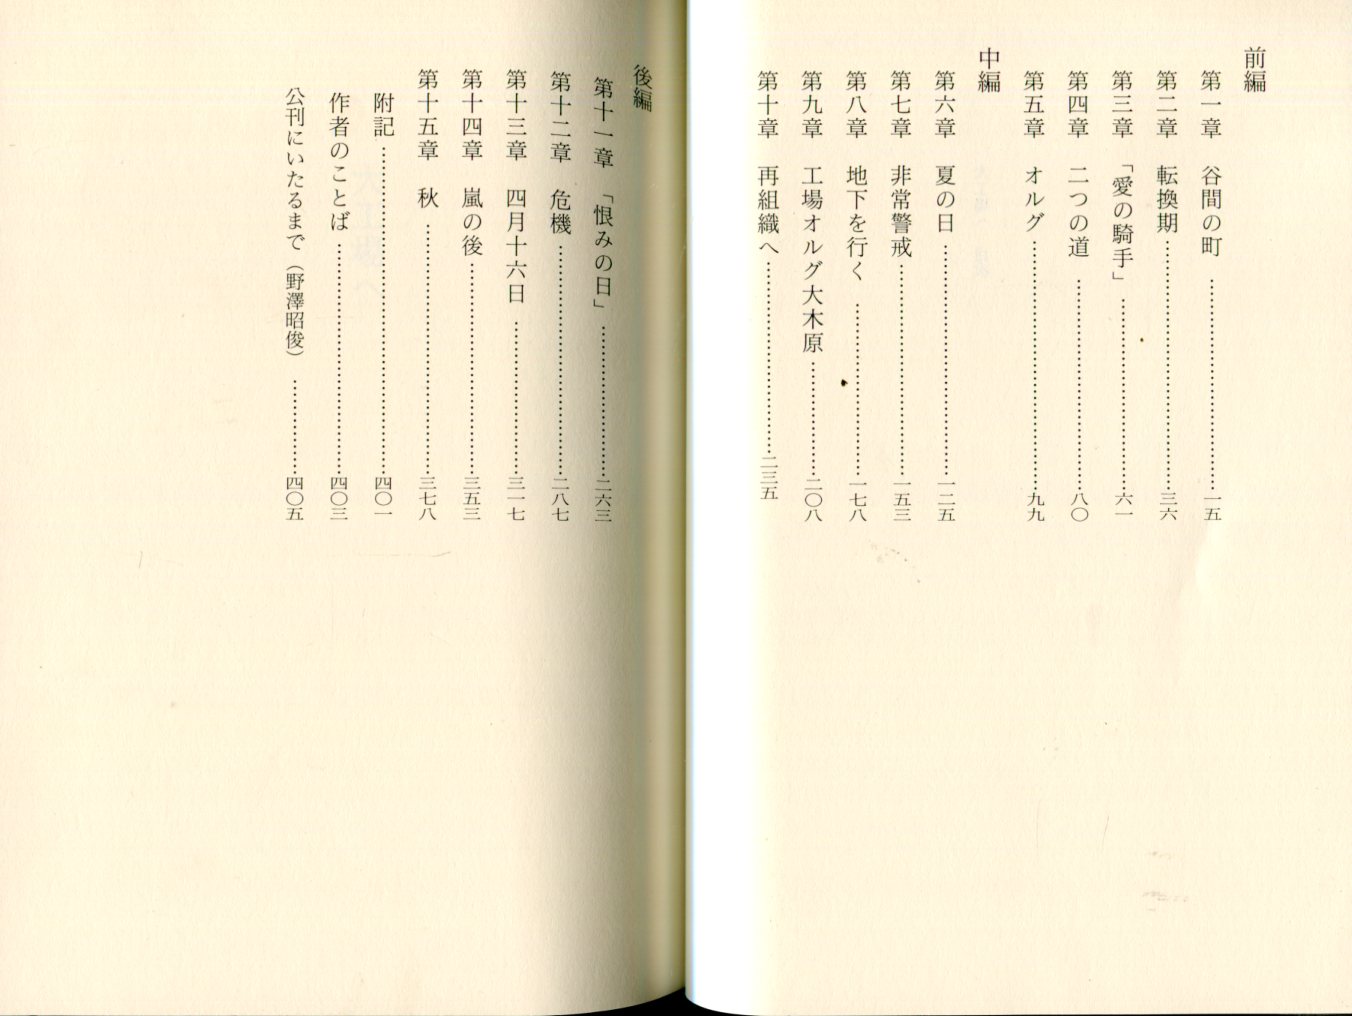 前編
第一章 谷間の町……………………一五
第二章 転換期……………………三六
第三章 「愛の騎手」……………………六一
第四章 二つの道……………………八〇
第五章 オルグ……………………九九
中編
第六章 夏の日……………………一二五
第七章 非常警戒……………………一五三
第八章 地下を行く……………………一七八
第九章 工場オルグ大木原……………………二〇八
第十章 再組織へ……………………二三五
後編
第十一章 「恨みの日」……………………二六三
第十二章 危機……………………二八七
第十三章 四月十六日……………………三一七
第十四章 嵐の後……………………三五三
第十五章 秋……………………三七八
附記……………………四〇一
作者のことば……………………四〇三
公刊にいたるまで（野澤昭俊）……………………四〇五